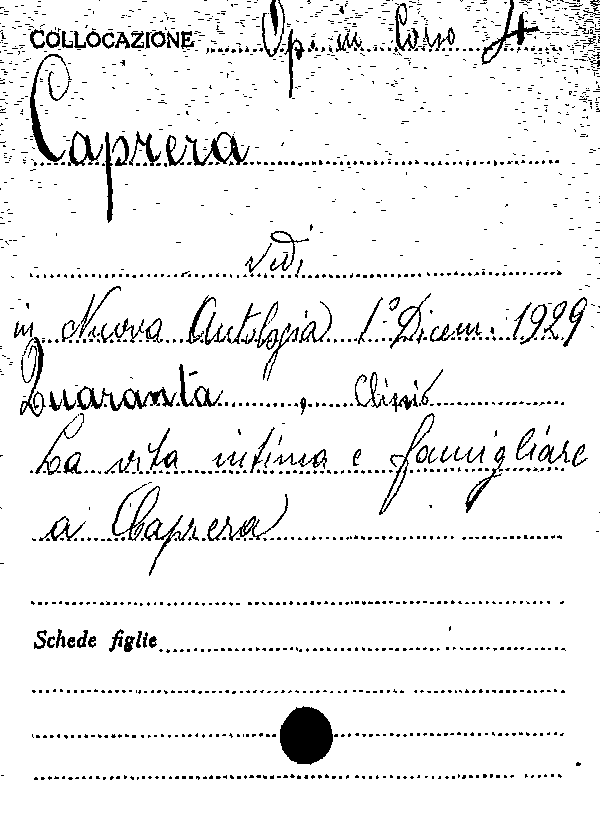 COLLOCAZIONE Op. in Corso 4
Caprera
vedi
in Nuova Antologia 1° Dicem. 1929
Quaranta,
La vita intima e famigliare
a Caprera
Schede figlie